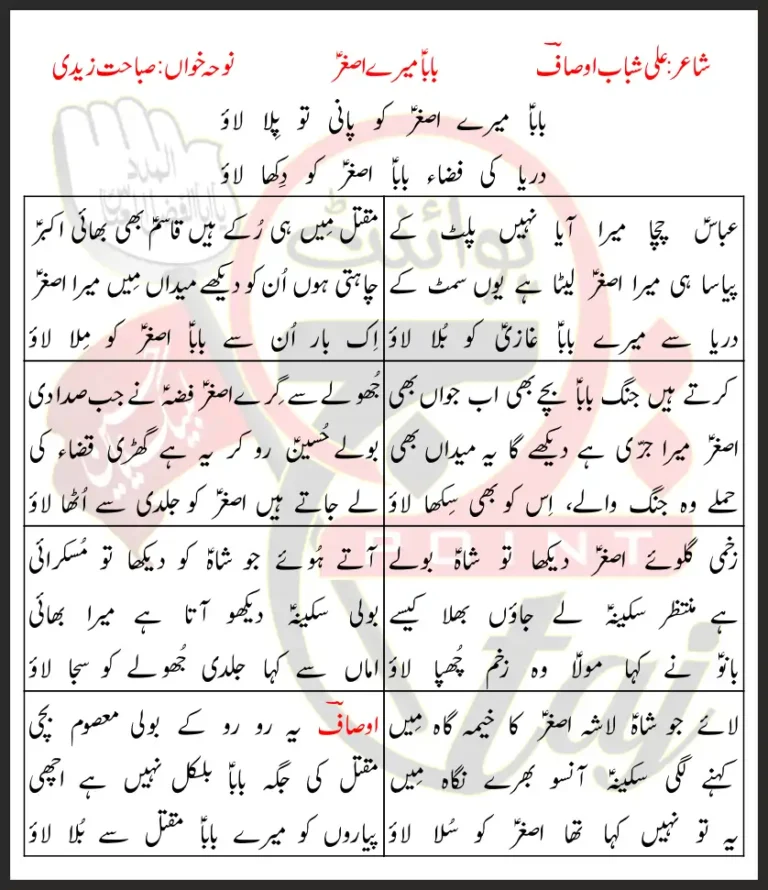 شاعر: علی شباب اوصافؔ
باباؑ میرے اصغرؑ
نوحہ خواں: صباحت زیدی
باباؑ میرے اصغرؑ کو پانی تو پِلا لاؤ
دریا کی فضاء باباؑ اصغرؑ کو دِکھا لاؤ
عباسؑ چچا میرا آیا نہیں پلٹ کے
پیاسا ہی میرا اصغرؑ لیٹا ہے یوں سمٹ کے
دریا سے میرے باباؑ غازیؑ کو بُلا لاؤ
مقتل مِیں ہی رُکے ہیں قاسمؑ بھی بھائی اکبرؑ
چاہتی ہوں اُن کو دیکھے میداں مِیں میرا اصغرؑ
اِک بار اُن سے باباؑ اصغرؑ کو مِلا لاؤ
کرتے ہیں جنگ باباؑ بچے بھی اب جواں بھی
اصغرؑ میرا جرّی ہے دیکھے گا یہ میداں بھی
حملے وہ جنگ والے، اِس کو بھی سِکھا لاؤ
جُھولے سے گِرے اصغرؑ فضہؑ نے جب صدا دی
بولے حُسینؑ رو کر یہ ہے گھڑی قضاء کی
لے جاتے ہیں اصغرؑ کو جلدی سے اُٹھا لاؤ
زخمی گلوئے اصغرؑ دیکھا تو شاہؑ بولے
ہے منتظر سکینہؑ لے جاؤں بھلا کیسے
بانوؑ نے کہا مولاؑ وہ زخم چُھپا لاؤ
آتے ہُوئے جو شاہؑ کو دیکھا تو مُسکرائی
بولی سکینہؑ دیکھو آتا ہے میرا بھائی
اماں سے کہا جلدی جُھولے کو سجا لاؤ
لائے جو شاہؑ لاشہ اصغرؑ کا خیمہ گاہ مِیں
کہنے لگی سکینہؑ آنسو بھرے نگاہ مِیں
یہ تو نہیں کہا تھا اصغرؑ کو سُلا لاؤ
اوصافؔ یہ رو رو کے بولی معصوم بچی
مقتل کی جگہ باباؑ بلکل نہیں ہے اچھی
پیاروں کو میرے باباؑ مقتل سے بُلا لاؤ
پوائنٹ
POINT
taj